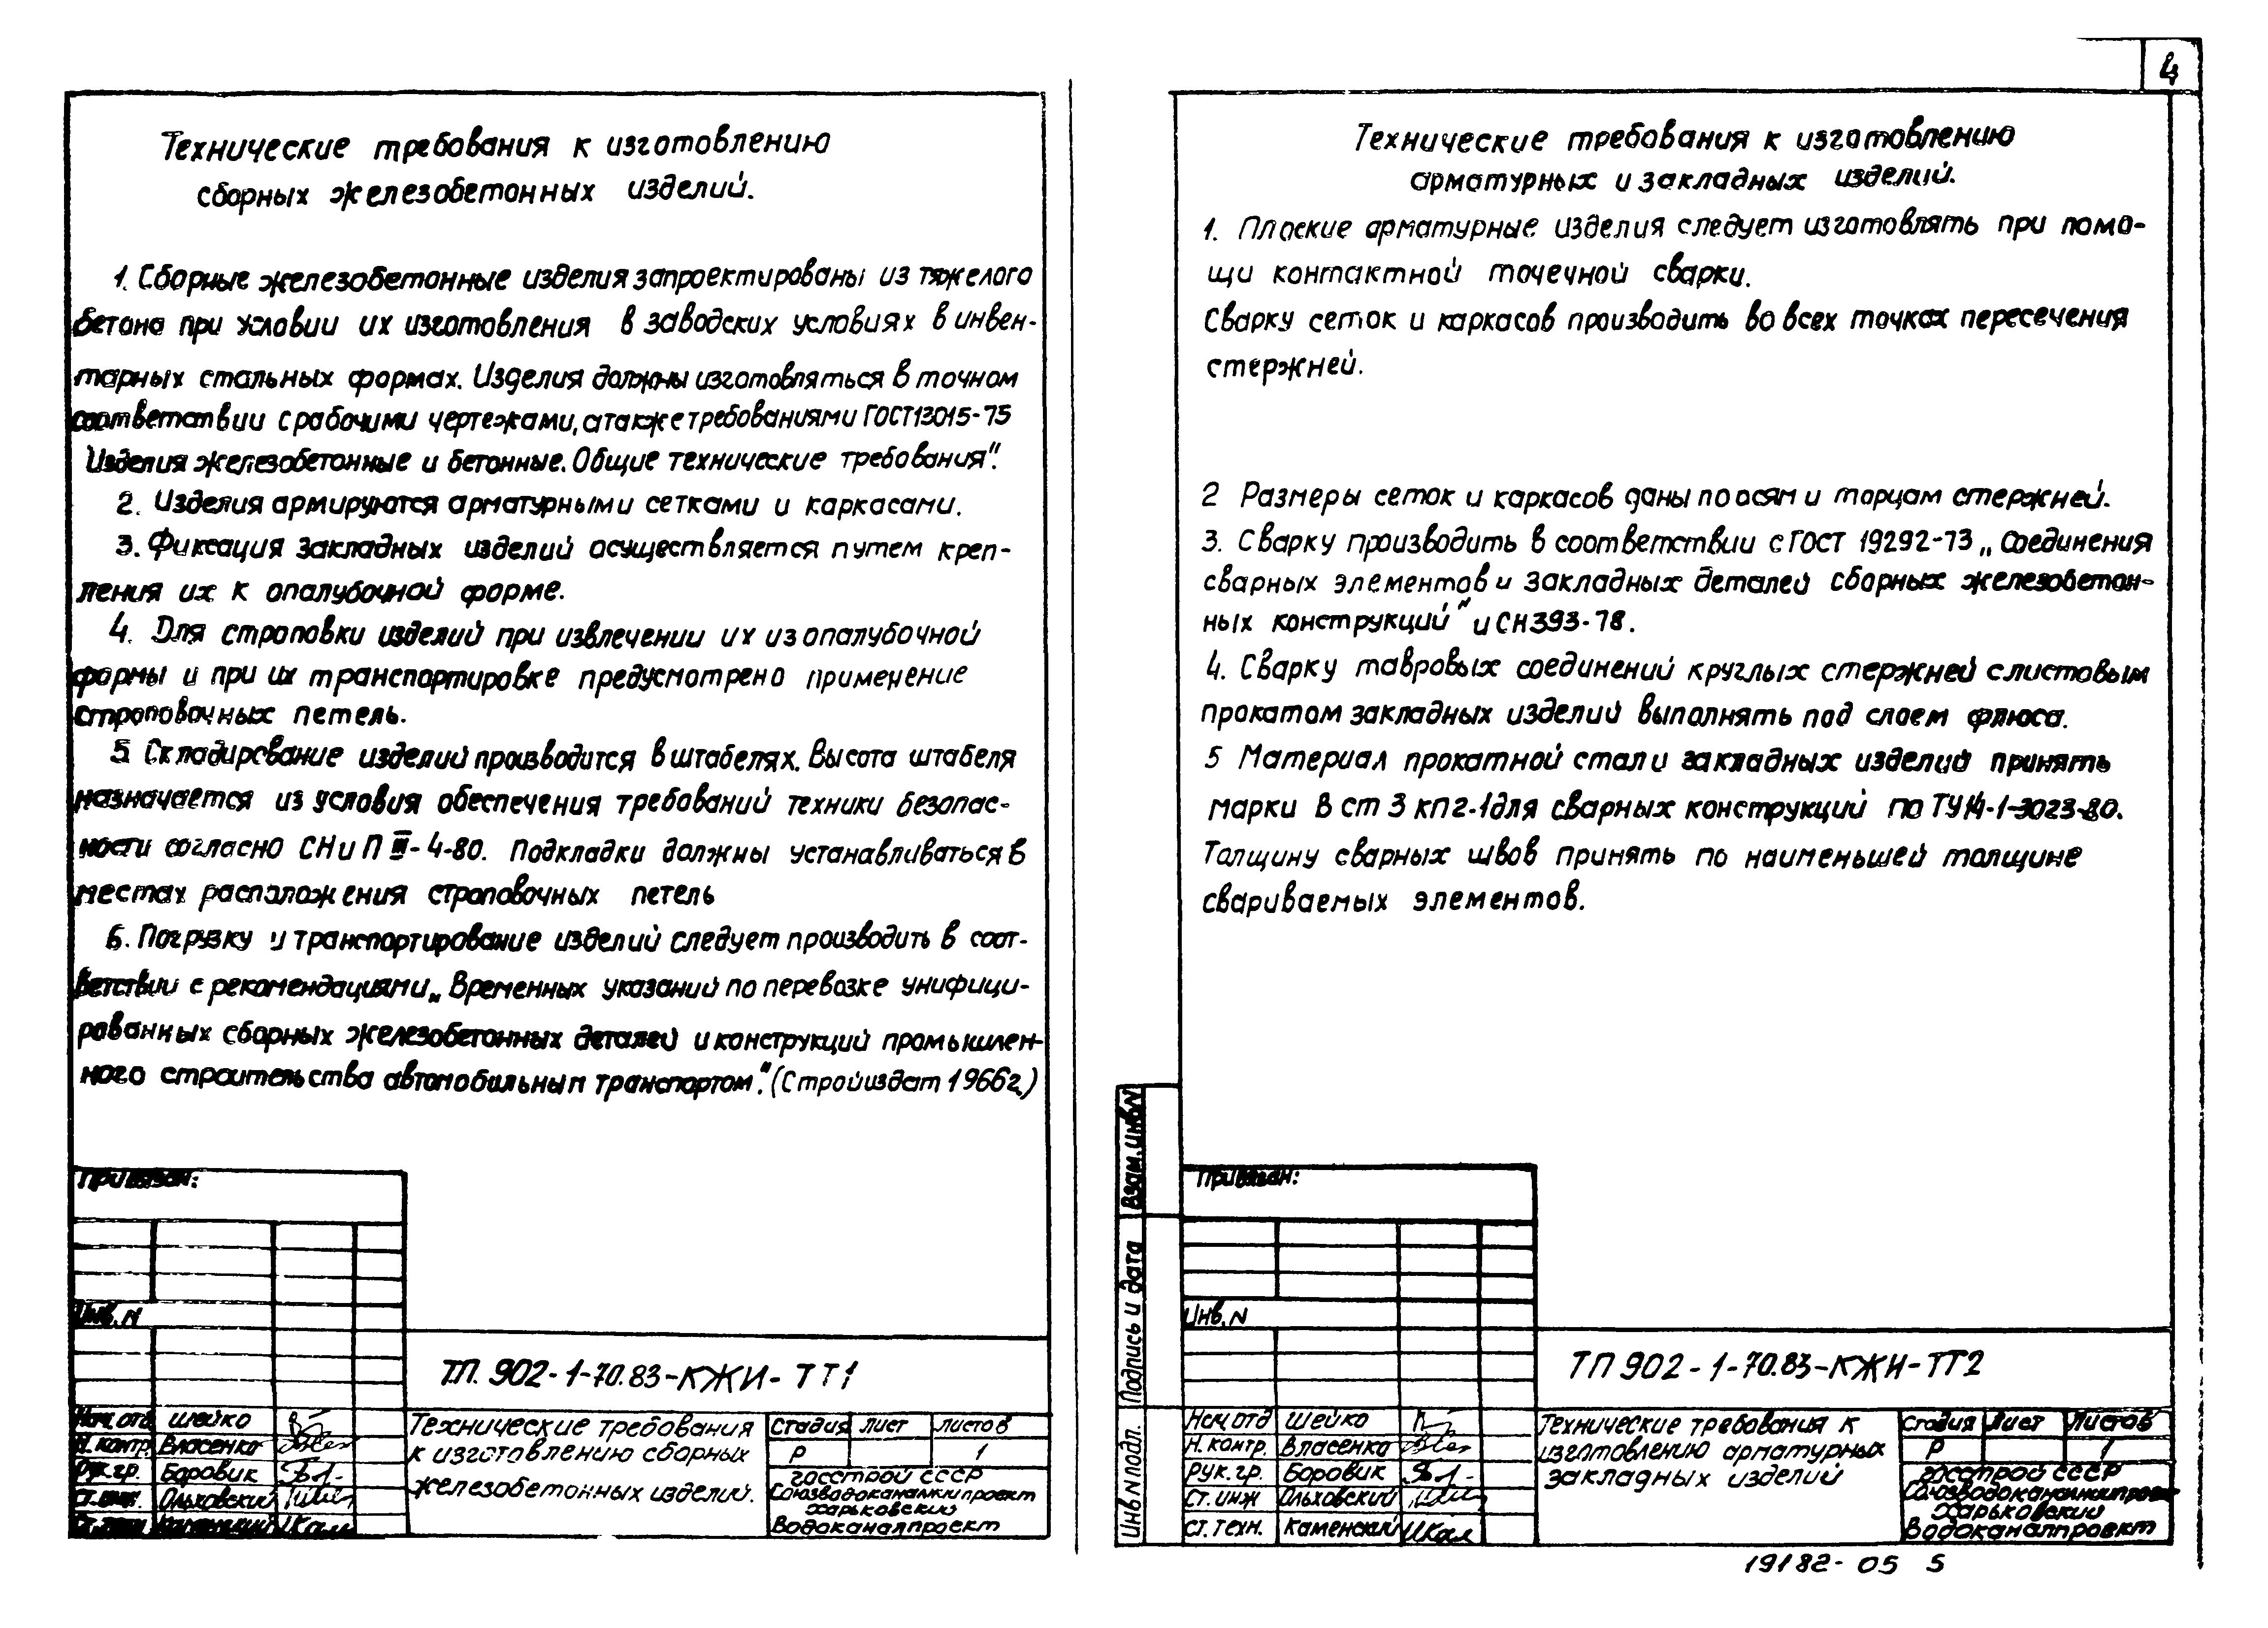 4
Технические требования к изготовлению
сборных железобетонных изделий.
1. Сборные железобетонные изделия запроектированы из тяжелого
бетона при условии их изготовления в заводских условиях в инвен-
тарных стальных формах. Изделия должны изготовляться в точном
соответствии с рабочими чертежами, а также требованиями ГОСТ 13015-75
Изделия железобетонные и бетонные. Общие технические требования".
2. Изделия армируются арматурными сетками и каркасами.
3. Фиксация закладных изделий осуществляется путем креп-
ления их к опалубочной форме.
4. Для строповки изделий при извлечении их из опалубочной
формы и при их транспортировке предусмотрено применение
строповочных петель.
5. Складирование изделий производится в штабелях. Высота штабеля
назначается из условия обеспечения требований техники безопас-
ности согласно СНиП III-4-80. Подкладки должны устанавливаться в
местах расположения строповочных петель
6. Погрузку и транспортирование изделий следует производить в соот-
ветствии с рекомендациями „Временных указаний по перевозке унифици-
рованных сборных железобетонных деталей и конструкций промышлен-
ного строительства автомобильным транспортом." (Стройиздат 1966г.)
Привязан:
Инв. N
ТП. 902-1-70.83-КЖИ-ТТ1
Нач. отд. Шейко
Н. контр. Власенко
Рук. гр. Боровик
Ст. инж. Ольховский
Ст. техн. Каменский
Технические требования
к изготовлению сборных
железобетонных изделий.
Стадия Лист Листов
Р 1
Госстрой СССР
Союзводоканалниипроект
Харьковский
Водоканалпроект
Технические требования к изготовлению
арматурных и закладных изделий.
1. Плоские арматурные изделия следует изготовлять при помо-
щи контактной точечной сварки.
Сварку сеток и каркасов производить во всех точках пересечения
стержней.
2 Размеры сеток и каркасов даны по осям и торцам стержней.
3. Сварку производить в соответствии с ГОСТ 19292-73 „Соединения
сварных элементов и закладных деталей сборных железобетон-
ных конструкций" и СН 393-78.
4. Сварку тавровых соединений круглых стержней с листовым
прокатом закладных изделий выполнять под слоем флюса.
5 Материал прокатной стали закладных изделий принять
марки В ст 3 кп 2-1 для сварных конструкций по ТУ 14-1-3023-80.
Толщину сварных швов принять по наименьшей толщине
свариваемых элементов.
Взам. инв. N
Подпись и дата
Инв N подл.
Привязан:
Инв. N
ТП 902-1-70.83-КЖИ-ТТ2
Нач. отд Шейко
Н. контр. Власенко
Рук. гр. Боровик
Ст. инж Ольховский
Ст. техн. Каменский
Технические требования к
изготовлению арматурных
закладных изделий
Стадия Лист Листов
Р 1
Госстрой СССР
Союзводоканалниипроект
Харьковский
Водоканалпроект
19182-05 5